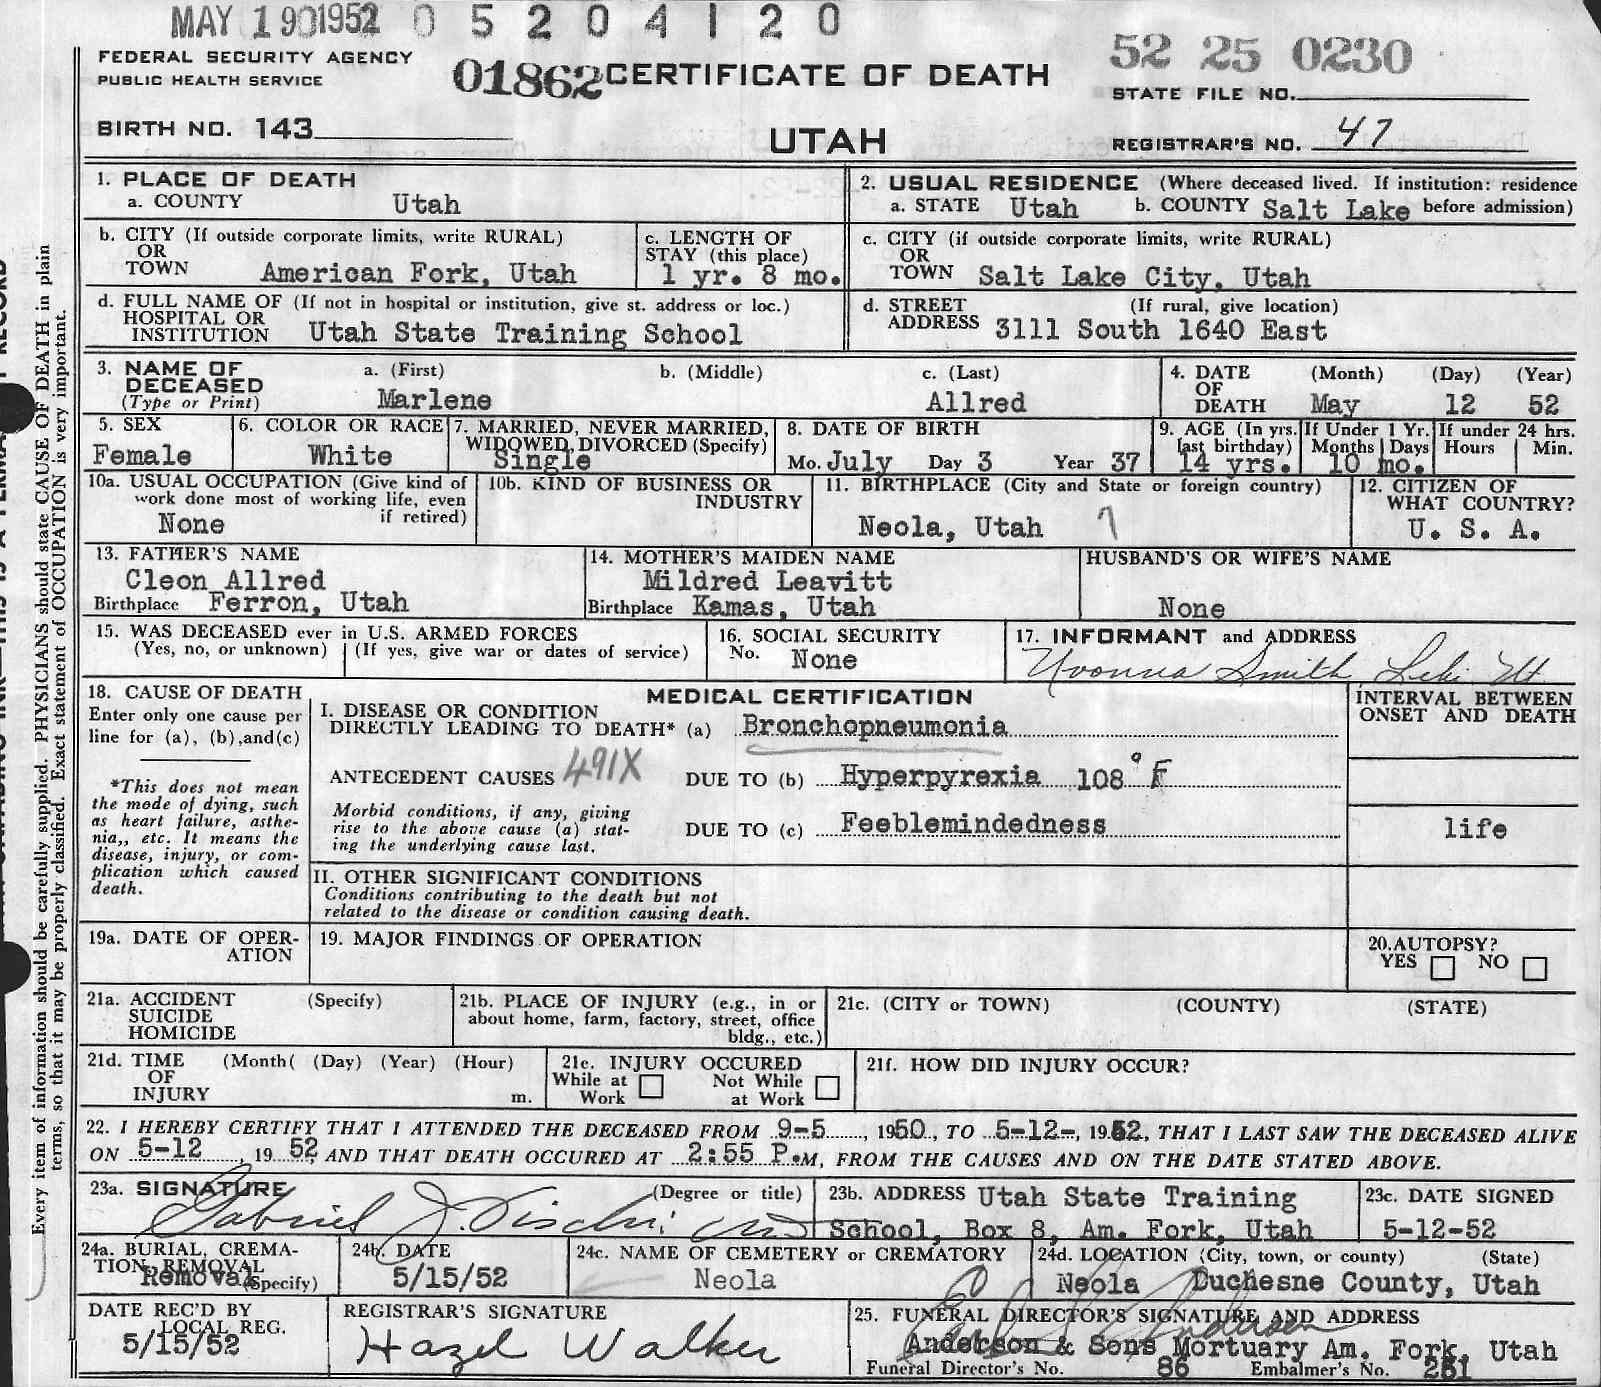 MAY 19 1952 0 5 2 0 4 1 2 0
FEDERAL SECURITY AGENCY
PUBLIC HEALTH SERVICE
01862 CERTIFICATE OF DEATH
52 25 0230
STATE FILE NO.
BIRTH NO. 143
UTAH
REGISTRAR'S NO. 47
1. PLACE OF DEATH
a. COUNTY Utah
2. USUAL RESIDENCE (Where deceased lived. If institution: residence
a. STATE Utah b. COUNTY Salt Lake before admission)
b. CITY (If outside corporate limits, write RURAL)
OR
TOWN American Fork, Utah
c. LENGTH OF
STAY (this place)
1 yr. 8 mo.
c. CITY (if outside corporate limits, write RURAL)
OR
TOWN Salt Lake City, Utah
d. FULL NAME OF (If not in hospital or institution, give st. address or loc.)
HOSPITAL OR
INSTITUTION Utah State Training School
d. STREET (If rural, give location)
ADDRESS 3111 South 1640 East
3. NAME OF a. (First) b. (Middle) c. (Last)
DECEASED
(Type or Print) Marlene Allred
4. DATE (Month) (Day) (Year)
OF
DEATH May 12 52
5. SEX
Female
6. COLOR OR RACE
White
7. MARRIED, NEVER MARRIED,
WIDOWED, DIVORCED (Specify)
Single
8. DATE OF BIRTH
Mo. July Day 3 Year 37
9. AGE (In yrs. If Under 1 Yr. If under 24 hrs.
last birthday) Months Days Hours Min.
14 yrs. 10 mo.
10a. USUAL OCCUPATION (Give kind of
work done most of working life, even
if retired)
None
10b. KIND OF BUSINESS OR
INDUSTRY
11. BIRTHPLACE (City and State or foreign country)
Neola, Utah
12. CITIZEN OF
WHAT COUNTRY?
U. S. A.
13. FATHER'S NAME
Cleon Allred
Birthplace Ferron, Utah
14. MOTHER'S MAIDEN NAME
Mildred Leavitt
Birthplace Kamas, Utah
HUSBAND'S OR WIFE'S NAME
None
15. WAS DECEASED ever in U.S. ARMED FORCES
(Yes, no, or unknown) (If yes, give war or dates of service)
16. SOCIAL SECURITY
No. None
17. INFORMANT and ADDRESS
Yvonna Smith Lehi Ut
18. CAUSE OF DEATH
Enter only one cause per
line for (a), (b), and (c)
*This does not mean
the mode of dying, such
as heart failure, asthe-
nia,, etc. It means the
disease, injury, or com-
plication which caused
death.
MEDICAL CERTIFICATION
I. DISEASE OR CONDITION
DIRECTLY LEADING TO DEATH* (a) Bronchopneumonia
ANTECEDENT CAUSES 491X DUE TO (b) Hyperpyrexia 108° F
Morbid conditions, if any, giving
rise to the above cause (a) stat-
ing the underlying cause last.
DUE TO (c) Feeblemindedness
INTERVAL BETWEEN
ONSET AND DEATH
life
II. OTHER SIGNIFICANT CONDITIONS
Conditions contributing to the death but not
related to the disease or condition causing death.
19a. DATE OF OPER-
ATION
19. MAJOR FINDINGS OF OPERATION
20. AUTOPSY?
YES NO
21a. ACCIDENT (Specify)
SUICIDE
HOMICIDE
21b. PLACE OF INJURY (e.g., in or
about home, farm, factory, street, office
bldg., etc.)
21c. (CITY or TOWN) (COUNTY) (STATE)
21d. TIME (Month( (Day) (Year) (Hour)
OF
INJURY m.
21e. INJURY OCCURED
While at Not While
Work at Work
21f. HOW DID INJURY OCCUR?
22. I HEREBY CERTIFY THAT I ATTENDED THE DECEASED FROM 9-5, 1950, TO 5-12-, 1952, THAT I LAST SAW THE DECEASED ALIVE
ON 5-12, 19 52, AND THAT DEATH OCCURED AT 2:55 P.M, FROM THE CAUSES AND ON THE DATE STATED ABOVE.
23a. SIGNATURE (Degree or title)
Gabriel J. MD
23b. ADDRESS Utah State Training
School, Box 8, Am. Fork, Utah
23c. DATE SIGNED
5-12-52
24a. BURIAL, CREMA-
TION, REMOVAL
Removal (Specify)
24b. DATE
5/15/52
24c. NAME OF CEMETERY or CREMATORY
Neola
24d. LOCATION (City, town, or county) (State)
Neola Duchesne County, Utah
DATE REC'D BY
LOCAL REG.
5/15/52
REGISTRAR'S SIGNATURE
Hazel Walker
25. FUNERAL DIRECTOR'S SIGNATURE AND ADDRESS
Anderson & Sons Mortuary Am. Fork, Utah
Funeral Director's No. 86 Embalmer's No. 251
Every item of information should be carefully supplied. PHYSICIANS should state CAUSE OF DEATH in plain
terms, so that it may be properly classified. Exact statement of OCCUPATION is very important.